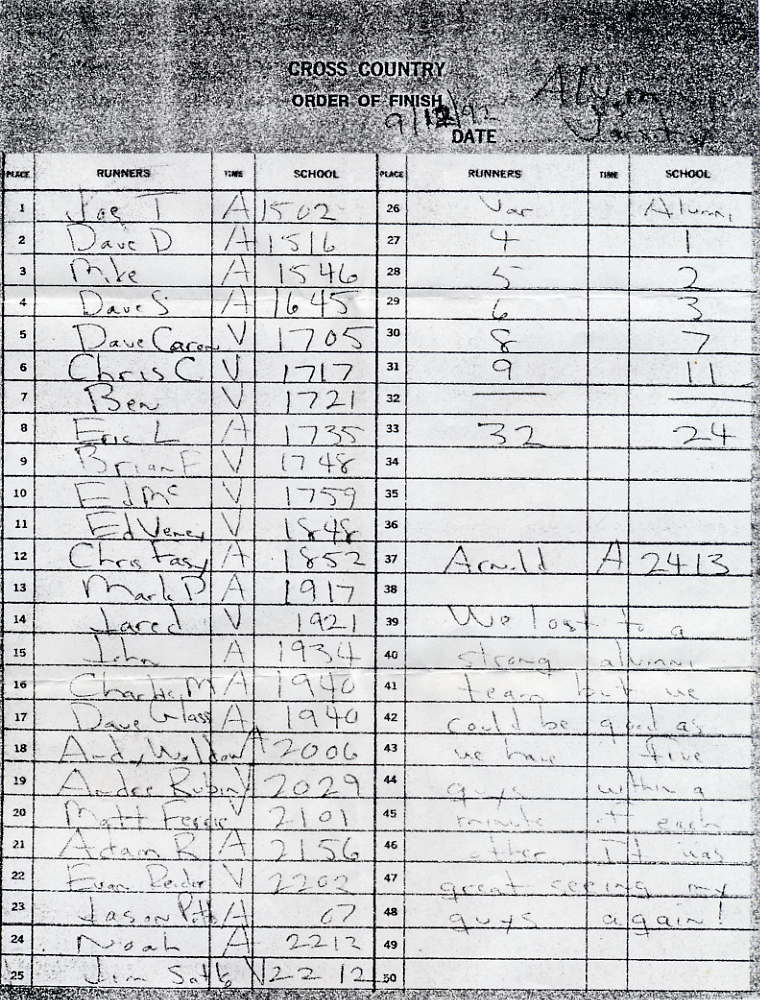 CROSS COUNTRY
ORDER OF FINISH
9/12/92
DATE
PLACE RUNNERS TIME SCHOOL
1 Joe T A 1502
2 Dave D A 1516
3 Mike A 1546
4 Dave S A 1645
5 Dave Caron V 1705
6 Chris C V 1717
7 Ben V 1721
8 Eric L A 1735
9 Brian F V 1748
10 Ed Mc V 1759
11 Ed Veney V 1848
12 Chris Fasy A 1852
13 Mark P A 1917
14 Jared V 1921
15 John A 1934
16 Charles M A 1940
17 Dave Glass A 1940
18 Andy Weldon A 2006
19 Andre Rubin V 2029
20 Matt V 2101
21 Adam R A 2156
22 Evan V 2203
23 Jason A 07
24 Noah A 2212
25 Jim V 2212
PLACE RUNNERS TIME SCHOOL
26 Var Alumni
27 4 1
28 5 2
29 6 3
30 8 7
31 9 11
32
33 32 24
34
35
36
37 Arnold A 2413
38
39 We lost to a
40 strong alumni
41 team but we
42 could be good as
43 we have five
44 guys within a
45 minute of each
46 other. It was
47 great seeing my
48 guys again!
49
50